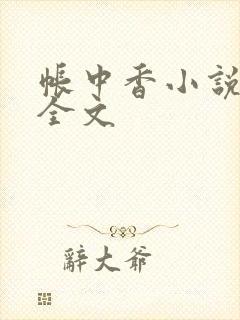 帳中香小說
全文
辭大爺